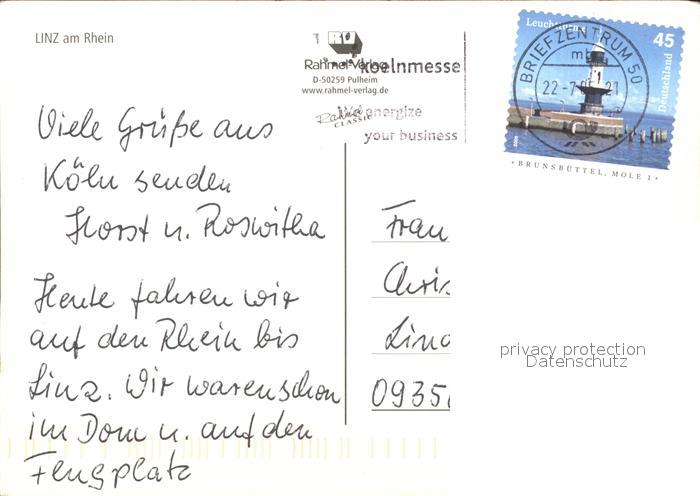 LINZ am Rhein
RU
Rahmel-Verlag
D-50259 Pulheim
www.rahmel-verlag.de
Rahmel
CLASSIC
koelnmesse
energize
your business
Leuchttürme
45
Deutschland
BRIEFZENTRUM 50
BRUNSBÜTTEL, MOLE 1
Viele Grüße aus
Köln senden
Horst u. Roswitha
Heute fahren wir
auf den Rhein bis
Linz. Wir waren schon
im Dom u. auf den
Flugplatz
Frau
Chris
Lind
0935
privacy protection
Datenschutz